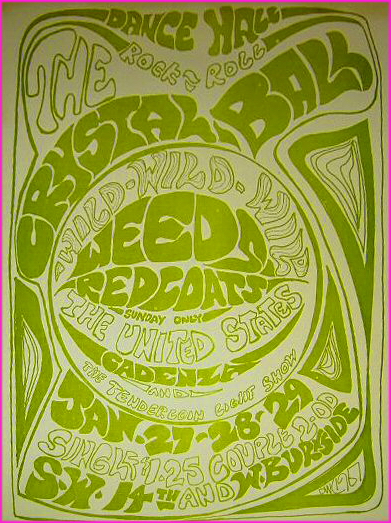 DANCE HALL
ROCK & ROLL
THE
CRYSTAL BALL
WILD-WILD-WILD
WEEDS
REDCOATS
SUNDAY ONLY
THE UNITED STATES
CADENZA
AND
THE TENDERLOIN LIGHT SHOW
JAN-27-28-29
SINGLE $1.25 COUPLE 2.00
S.W. 14TH AND W. BURNSIDE